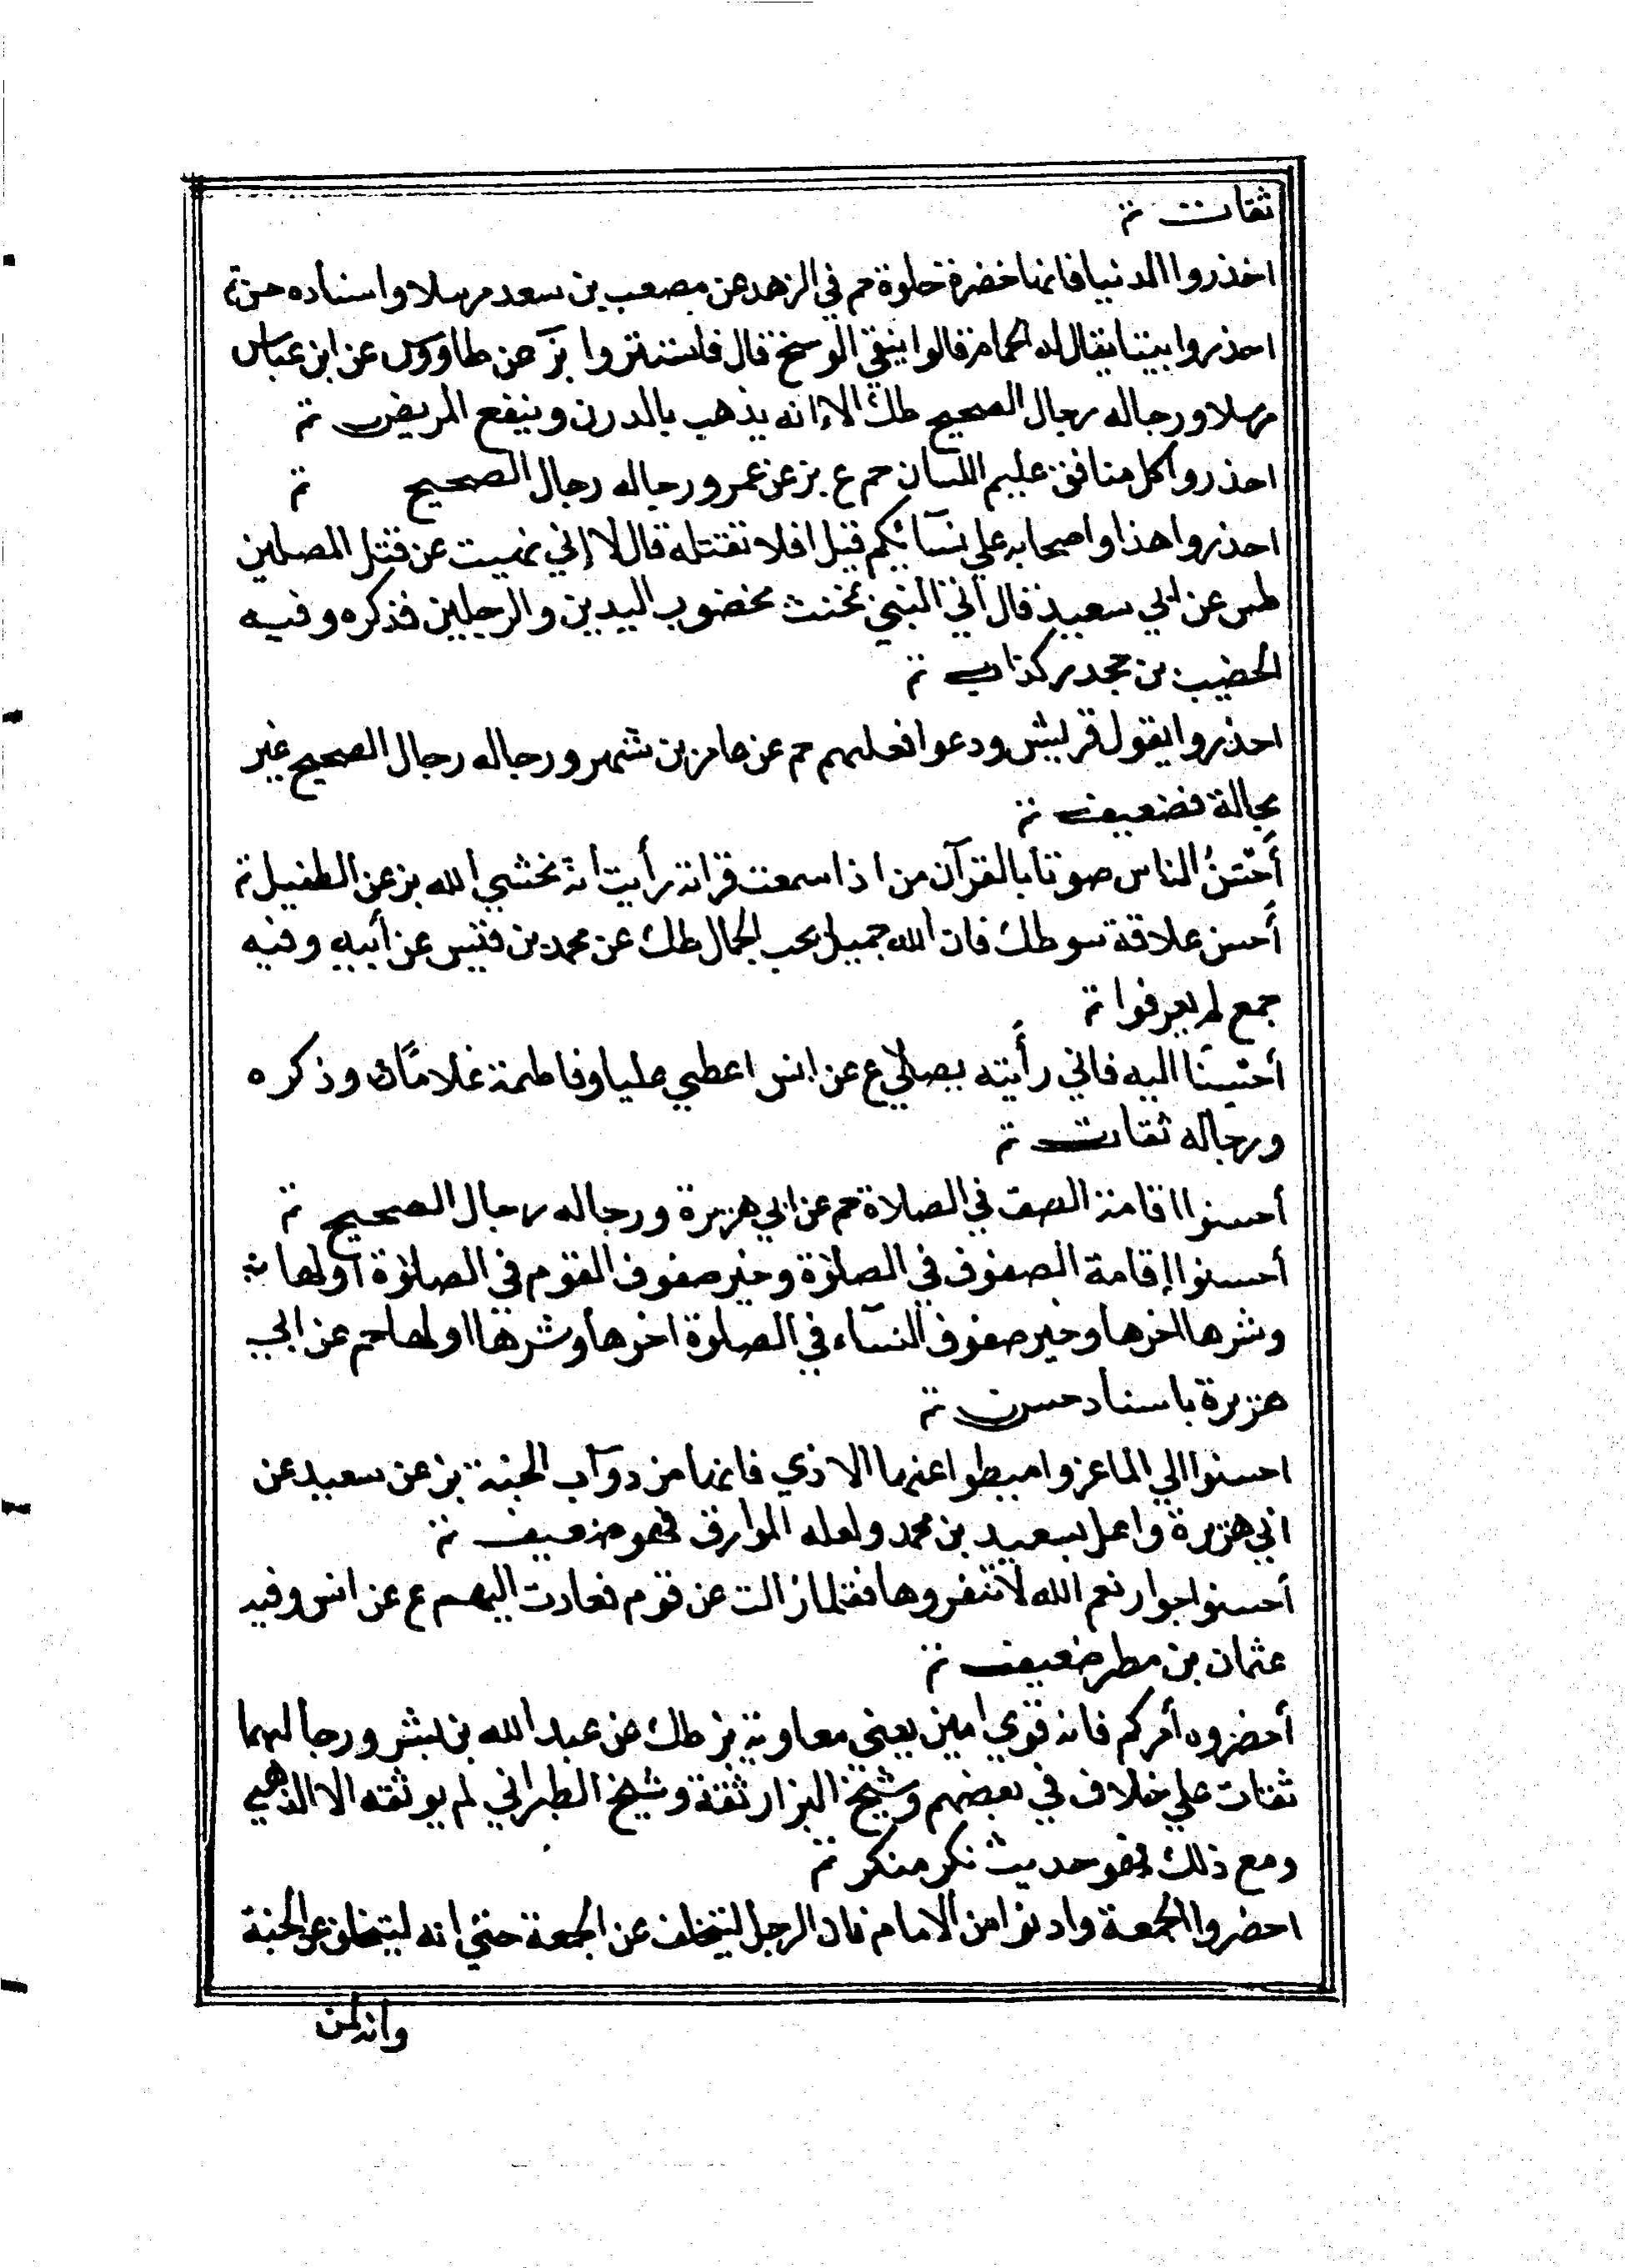 ثقات
احذروا الدنيا فانها خضرة حلوة حم في الزهد عن مصعب بن سعد مرسلا واسناده حسن
احذروا بيتا يقال له الحمام قالوا ينقي الوسخ قال فاستتروا بز عن طاووس عن ابن عباس
مرسلا ورجاله رجال الصحيح طك الا انه يذهب بالدرن وينفع المريض
احذروا كل منافق عليم اللسان حم ع بز عن عمر ورجاله رجال الصحيح
احذروا هذا واصحابه علي نسائكم قيل افلا نقتله قال لا إني نهيت عن قتل المصلين
طس عن ابي سعيد قال اتي النبي بمخنث مخضوب اليدين والرجلين فذكره وفيه
الخصيب بن جحدر كذاب
احذروا بقول قريش ودعوا فعلهم حم عن عامر بن شهر ورجاله رجال الصحيح غير
مجالة فضعيف
أحْسَنُ الناس صوتا بالقرآن من اذا سمعت قراته رأيت انه يخشي الله بز عن الطفيل
أحسن علاقة سوطك فان الله جميل يحب الجمال طك عن محمد بن قيس عن أبيه وفيه
جمع لم يعرفوا
أحسنا اليه فاني رأيته يصلي ع عن انس اعطي عليا وفاطمة غلاما وذكره
ورجاله ثقات
أحسنوا اقامة الصف في الصلاة حم عن ابي هريرة ورجاله رجال الصحيح
أحسنوا إقامة الصفوف في الصلوة وخير صفوف القوم في الصلوة اولها
وشرها اخرها وخير صفوف النساء في الصلوة اخرها وشرها اولها حم عن ابي
هريرة باسناد حسن
احسنوا الي الماعز وامبطوا عنها الاذي فانها من دوآب الجنة بز عن سعيد عن
ابي هريرة واعل بسعيد بن محمد ولعله الوارق فهو ضعيف
أحسنوا جوار نعم الله لا تنفروها فقلما زالت عن قوم فعادت اليهم ع عن انس وفيه
عثمان بن مطر ضعيف
أحضروه أمركم فانه قوي امين يعني معاوية بز طك عن عبد الله بن بشر ورجالهما
ثقات علي خلاف في بعضهم وشيخ البزار ثقة وشيخ الطبراني لم يوثقه الا الذهبي
ومع ذلك فهو حديث نكر منكر
احضروا الجمعة وادنوا من الامام فان الرجل ليتخلف عن الجمعة حتي انه ليتخلف عن الجنة
وانه لمن